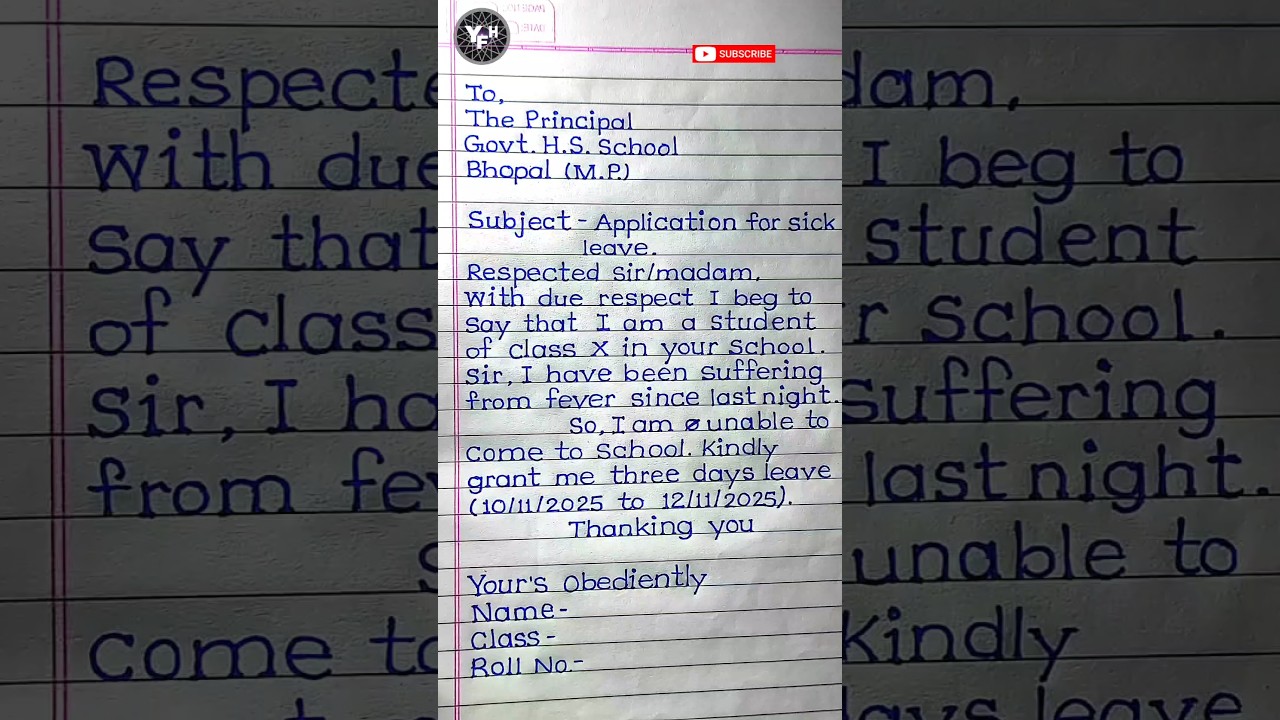 PAGE NO.
DATE:
YFH
SUBSCRIBE
To,
The Principal
Govt. H.S. School
Bhopal (M.P.)
Subject - Application for sick
leave.
Respected sir/madam,
With due respect I beg to
say that I am a student
of class X in your school.
Sir, I have been suffering
from fever since last night.
So, I am unable to
come to school. Kindly
grant me three days leave
(10/11/2025 to 12/11/2025).
Thanking you
Your's Obediently
Name-
Class-
Roll No.-